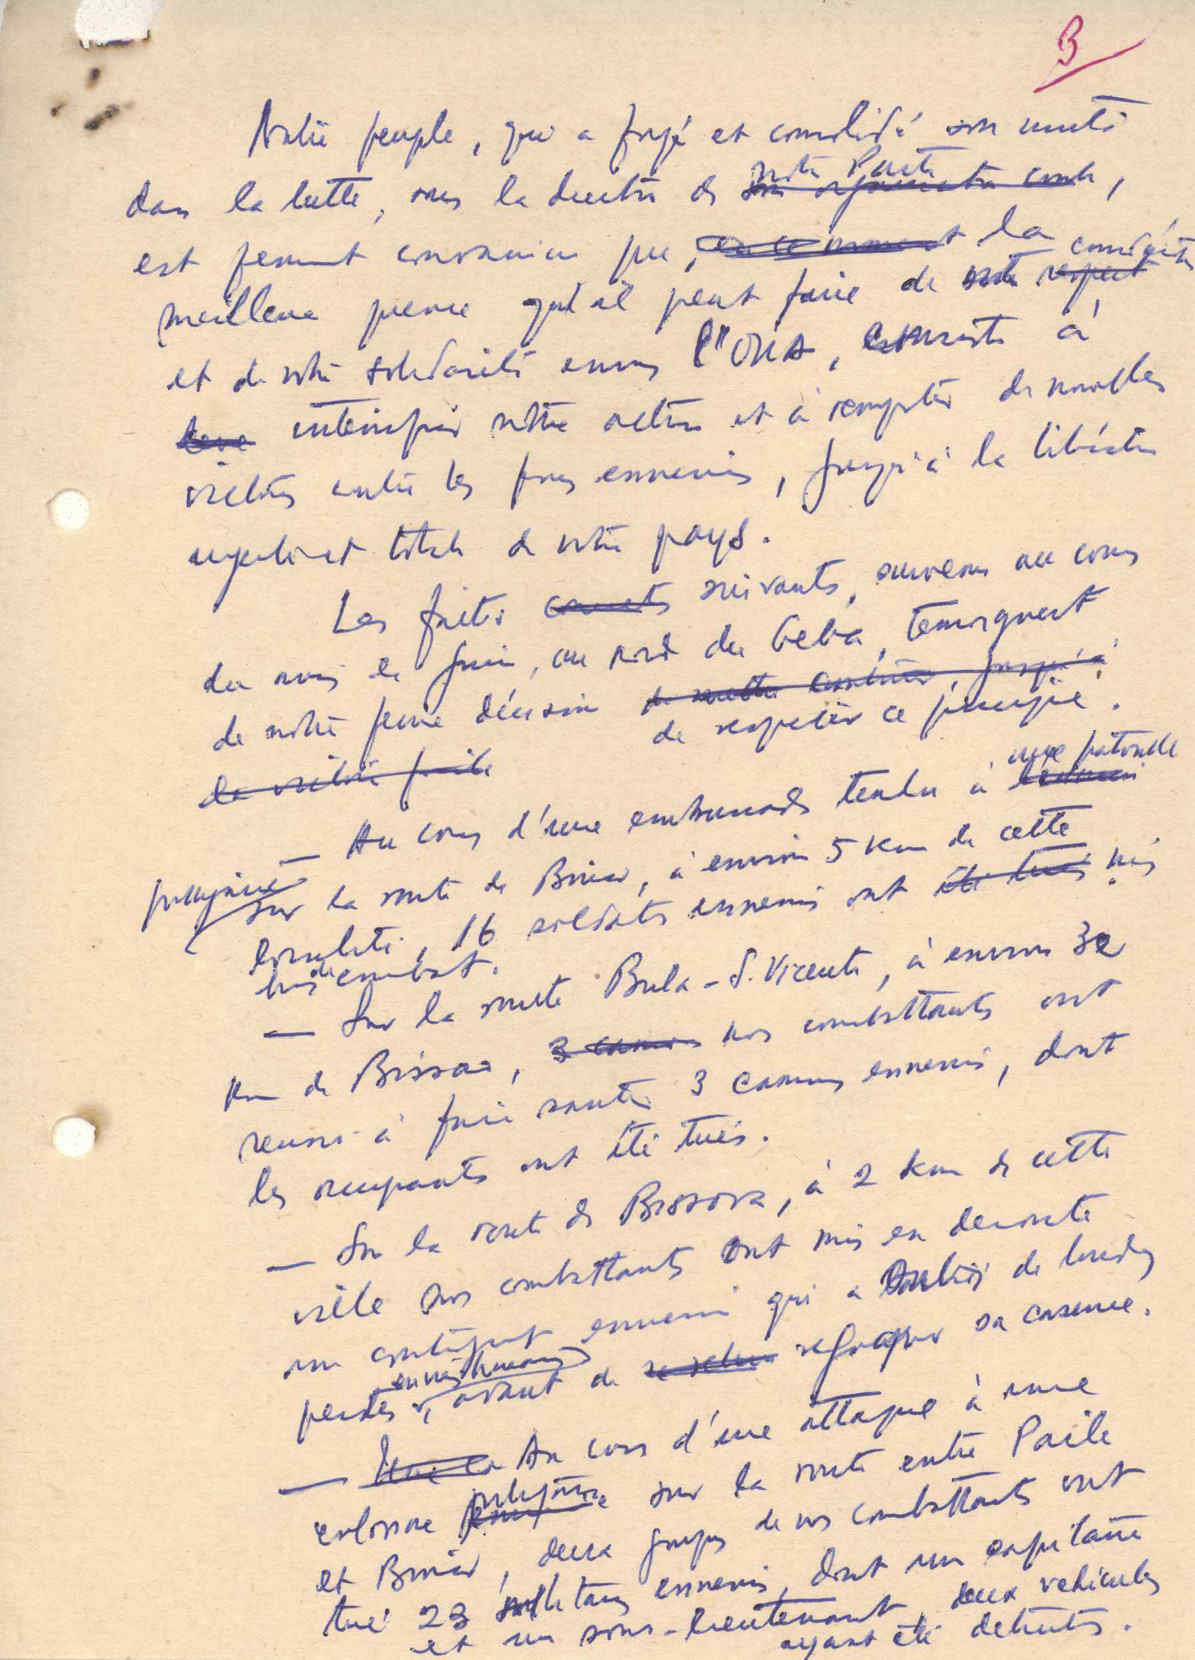 3
Notre peuple, qui a forgé et consolidé son unité
dans la lutte, sous la direction de notre Parti,
est fermement convaincu que, la
meilleure preuve qu'il peut faire de notre considération
et de notre solidarité envers l'OUA, consiste à
intensifier notre action et à remporter de nouvelles
victoires contre les forces ennemies, jusqu'à la libération
et totale de notre pays.
Les faits suivants, survenus au cours
du mois de Juin, au nord du Geba, témoignent
de notre ferme décision de respecter ce principe.
— Au cours d'une embuscade tendue à une patrouille
portugaise
sur la route de Bissau, à environ 5 km de cette
localité, 16 soldats ennemis ont été mis
hors de combat.
— Sur la route Bula-S. Vicente, à environ 32
km de Bissau, 3 camions nos combattants ont
réussi à faire sauter 3 camions ennemis, dont
les occupants ont été tués.
— Sur la route de Bissora, à 2 km de cette
ville nos combattants ont mis en déroute
un contingent ennemi qui a subi de lourdes
pertes, avant de sa caserne.
— Au cours d'une attaque à une
colonne portugaise sur la route entre
et, deux groupes de nos combattants ont
tué 23 militaires ennemis, dont un capitaine
et un sous-lieutenant, deux véhicules
ayant été détruits.